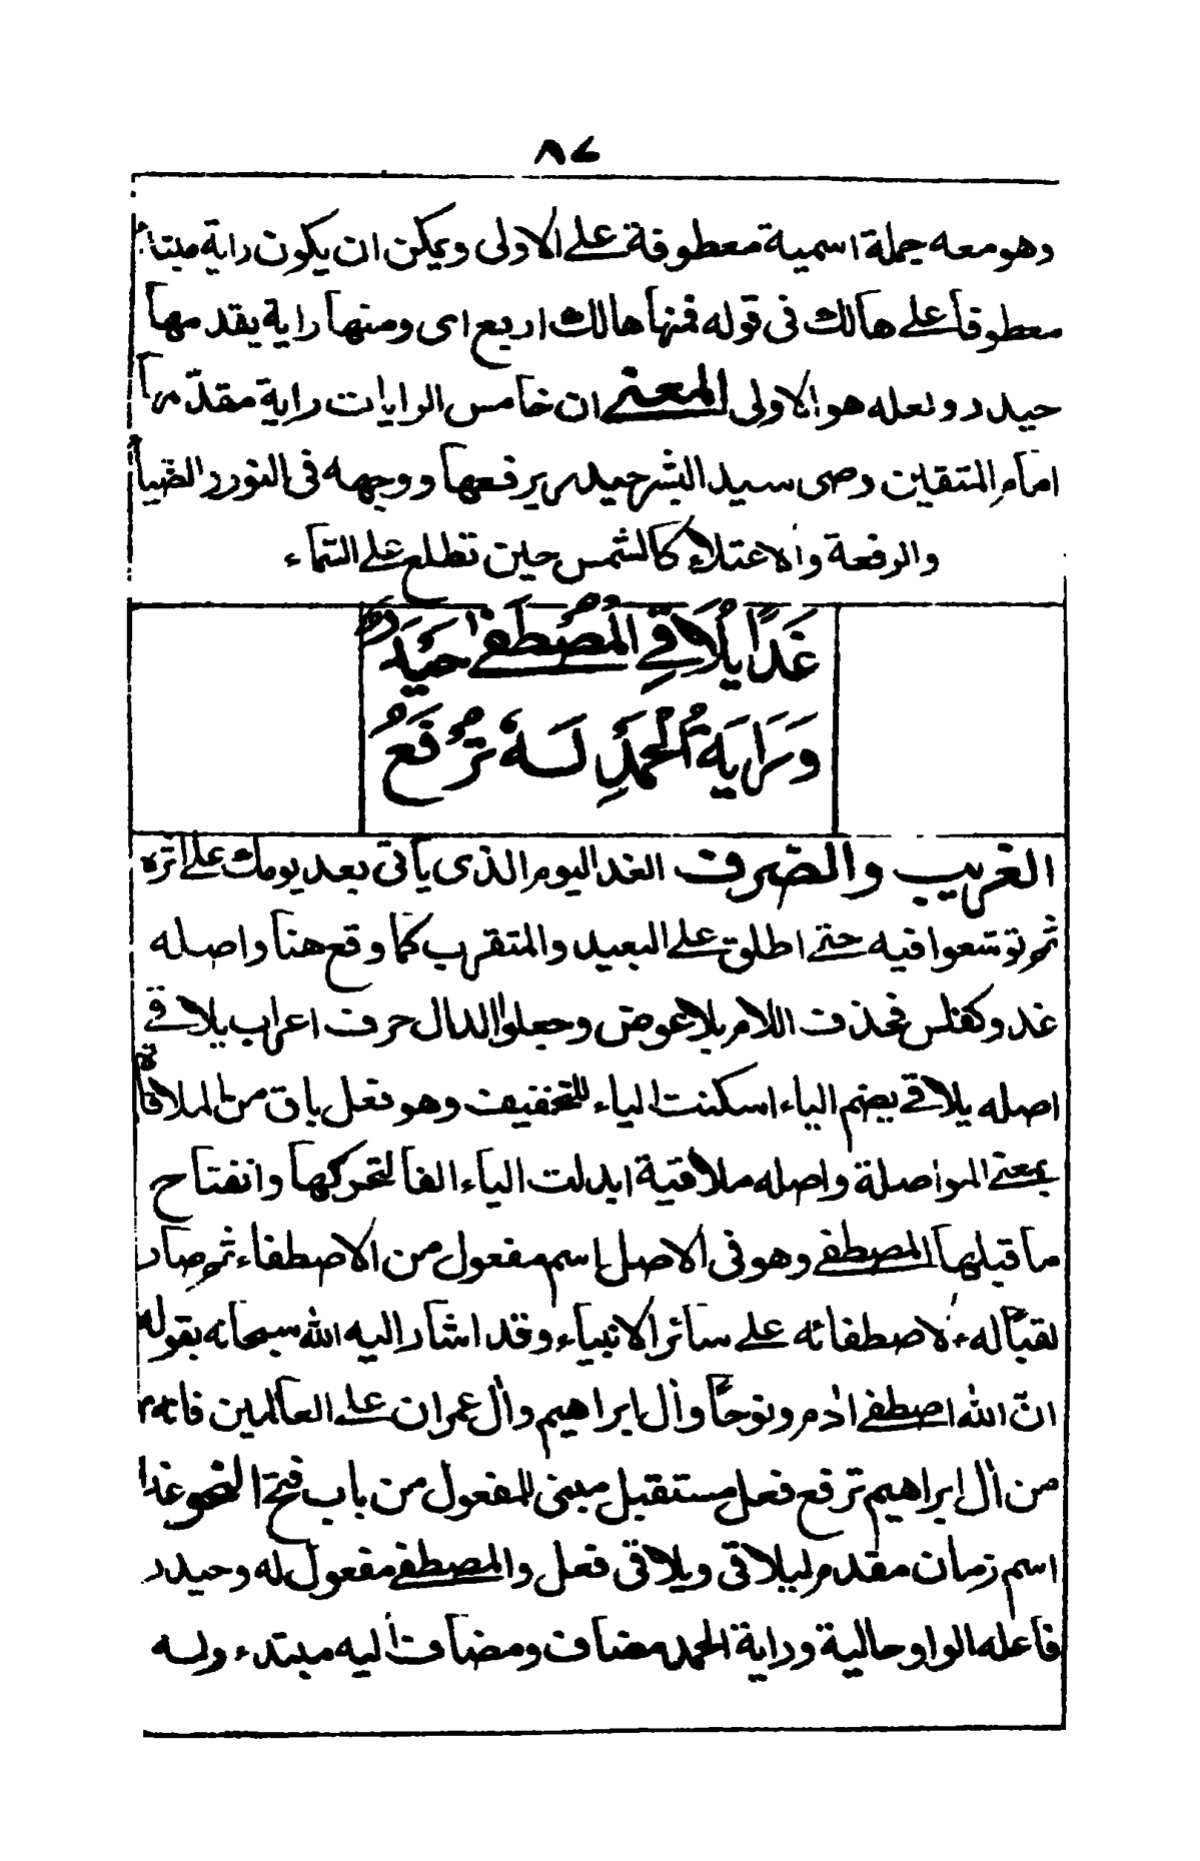 ٨٤
وهو معه جملة اسمية معطوفة على الاولى ويمكن ان يكون راية مبتدأ
معطوفاً على هالك فى قوله فمنها هالك اربع اى ومنها راية يقدمها
حيدر ولعله هو الاولى المعنى ان خامس الرايات راية مقدّمها
امام المتقين وصى سيد البشر حيدر يرفعها ووجهه فى النور والضياء
والرفعة والاعتلاء كالشمس حين تطلع على السماء
غَدًا يُلَاقِي المُصْطَفٰى حَيْدَرٌ
وَرَايَةُ الْحَمْدِ لَهُ تُرْفَعُ
الغريب والصّرف الغد اليوم الذى يأتى بعد يومك على اثره
ثم توسّعوا فيه حتى اطلق على البعيد والمتقرب كما وقع هنا واصله
غدو كفلس فحذفت اللام بلا عوض وجعلوا الدال حرف اعراب يلاقى
اصله يلاقى بضم الياء اسكنت الياء للتخفيف وهو فعل باق من الملاقاة
بمعنى المواصلة واصله ملاقية ابدلت الياء الفا لتحركها وانفتاح
ما قبلها المصطفى وهو فى الاصل اسم مفعول من الاصطفاء ثم صار
لقباً له لاصطفائه على سائر الانبياء وقد اشار اليه الله سبحانه بقوله
انّ الله اصطفى اٰدم ونوحاً واٰل ابراهيم واٰل عمران على العالمين فانه
من اٰل ابراهيم ترفع فعل مستقبل مبنى للمفعول من باب فتح النحو غدا
اسم زمان مقدم ليلاقى ويلاقى فعل والمصطفى مفعول له وحيدر
فاعله الواو حالية وراية الحمد مضاف ومضاف اليه مبتدء وله